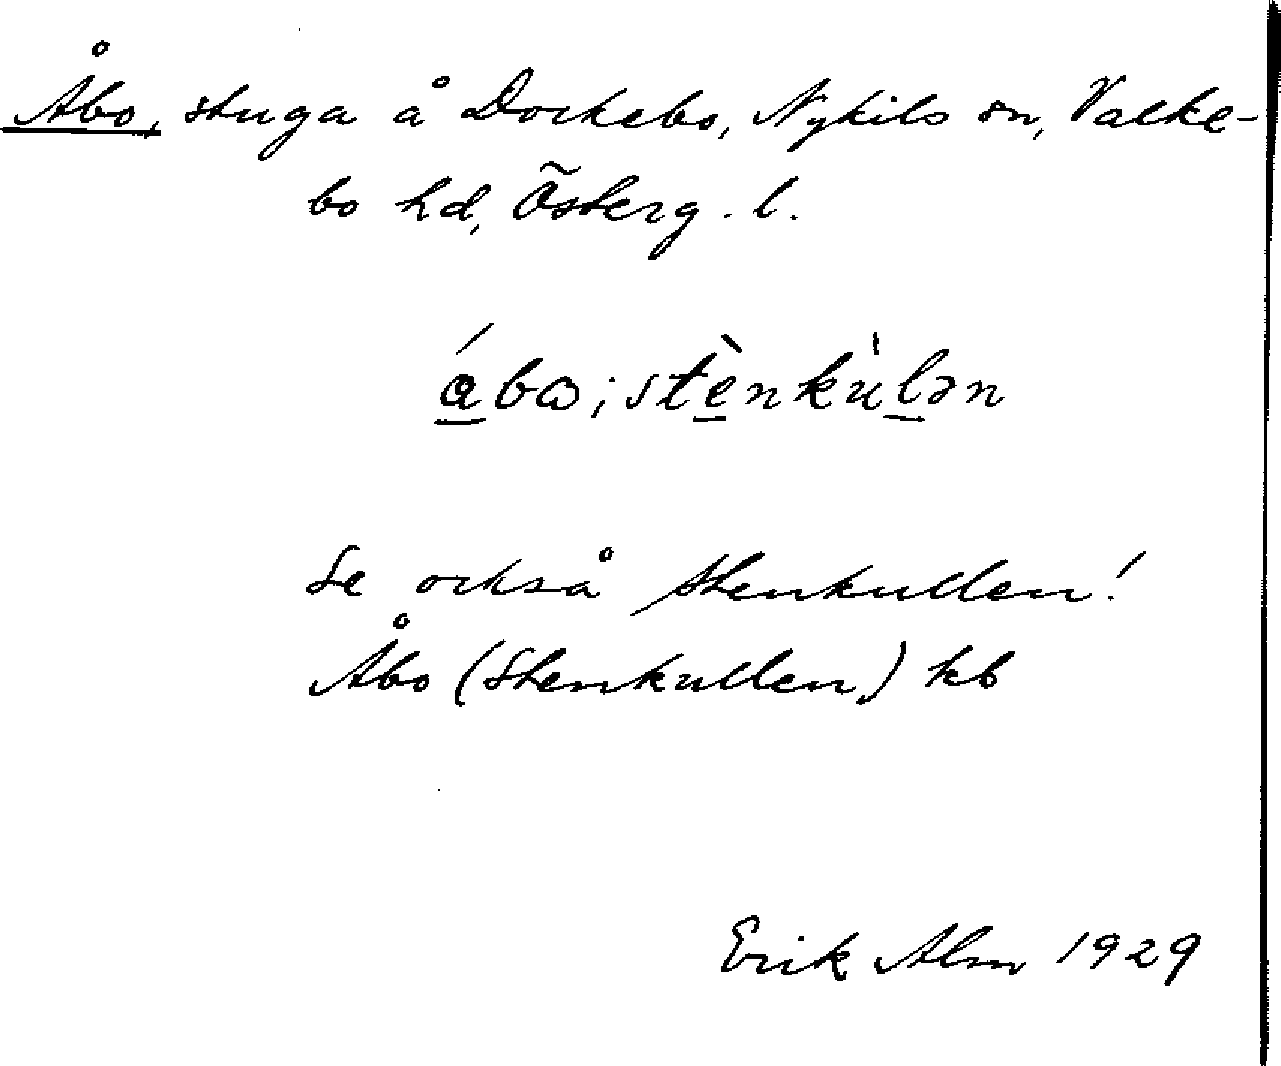 Åbo, stuga å Dockebo, Nykils sn, Valke-
bo hd, Österg. l.
ábo; stènkùlən
Se också Stenkullen!
Åbo (Stenkullen) kb
Erik Alm 1929